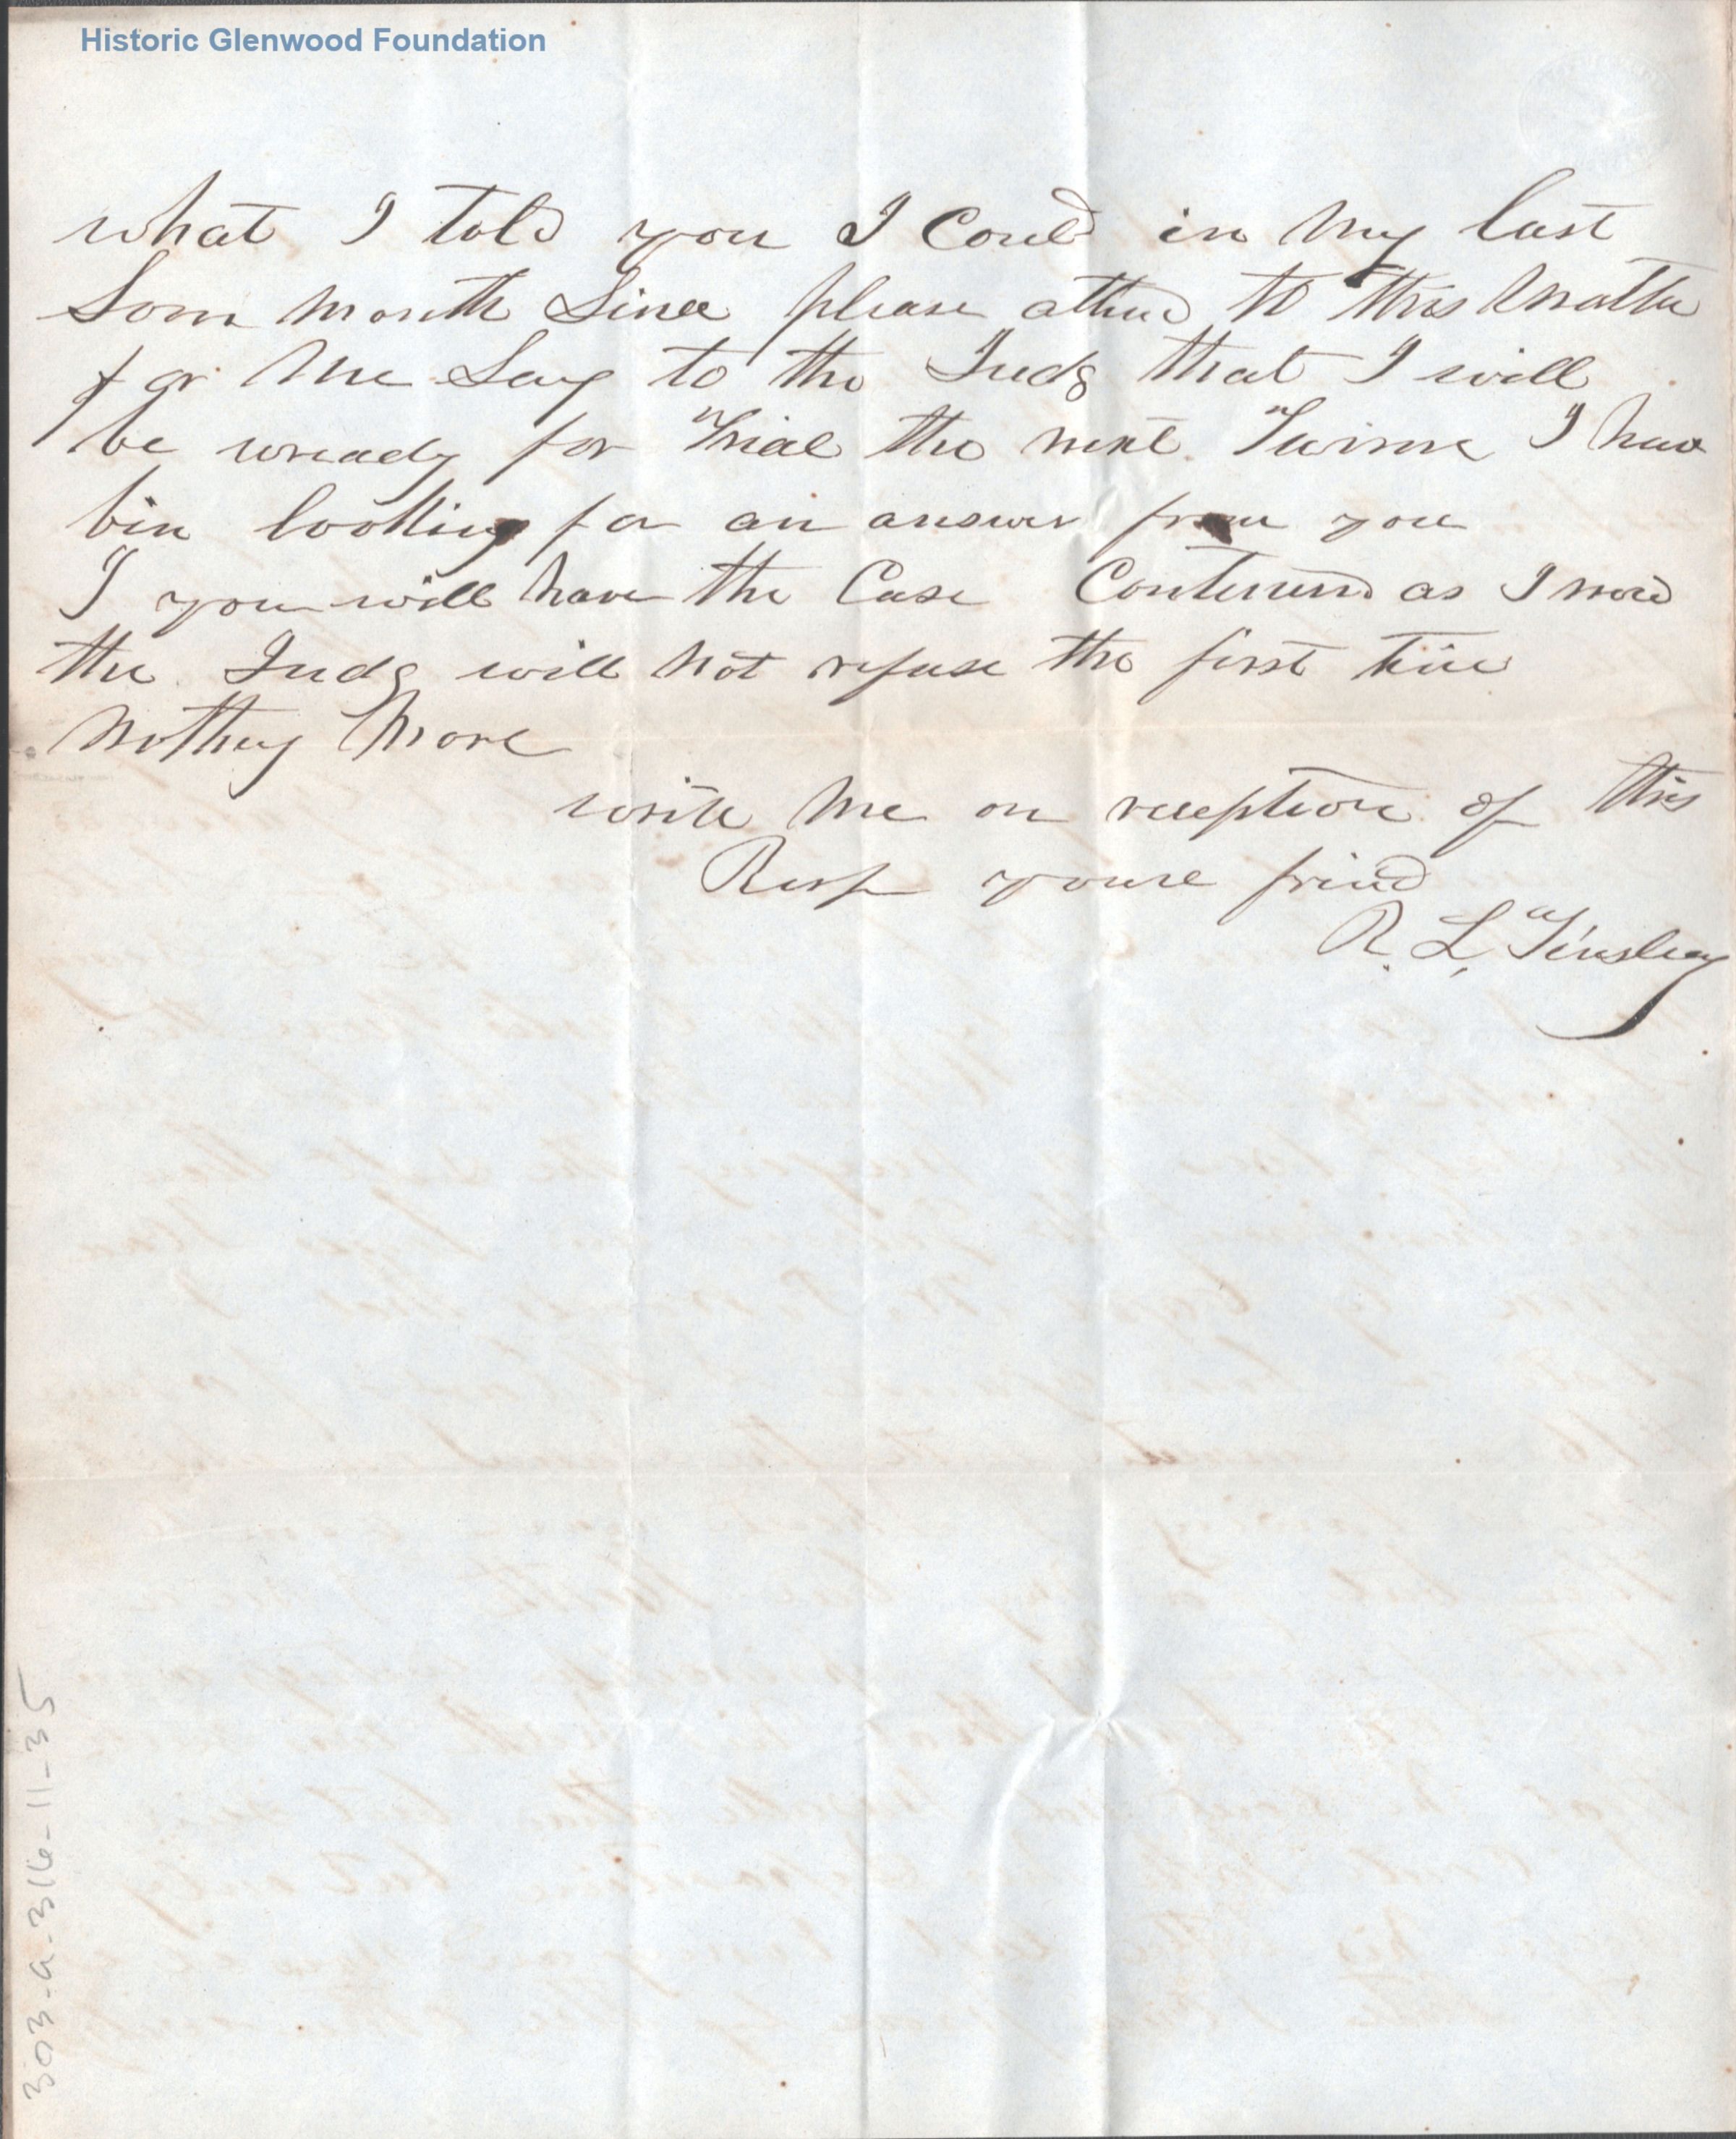 Historic Glenwood Foundation
what I told you I Could in my last
Som month Since please attend to this matter
for me Say to the Judg that I will
be wready for Trial the next I have
bin looking for an answer from you
I you will have the Case Contenued as I
the Judg will not refuse the first time
nothing more
write me on reception of this
Resp youre friend
R. L. Tinsley
303-a-316-11-35